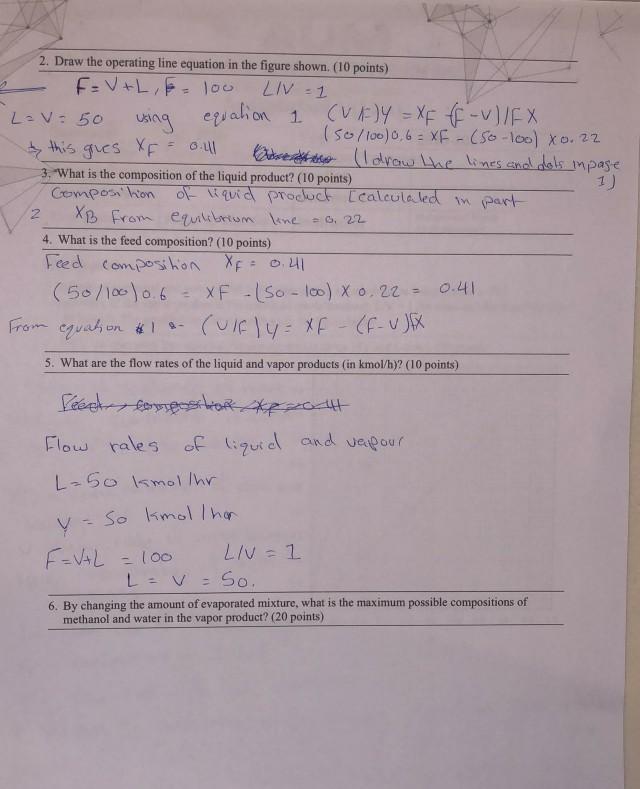 2. Draw the operating line equation in the figure shown. (10 points)
F = V+L , F = 100 L/V = 1
L = V = 50 using equation 1 (V/F)y = XF (F-V)/F X
(50/100)0.6 = XF - (50-100) x 0.22
this gives XF = 0.41 (I draw the lines and dots in page 1)
3. What is the composition of the liquid product? (10 points)
Composition of liquid product [calculated in part
2 XB From equilibrium line = 0.22
4. What is the feed composition? (10 points)
Feed composition XF = 0.41
(50/100)0.6 = XF - (50-100) X 0.22 = 0.41
From equation #1 (V/F)y = XF - (F-V)/FX
5. What are the flow rates of the liquid and vapor products (in kmol/h)? (10 points)
Flow rates of liquid and vapour
L=50 kmol/hr
V = 50 kmol/hr
F=V+L = 100 L/V = 1
L = V = 50.
6. By changing the amount of evaporated mixture, what is the maximum possible compositions of
methanol and water in the vapor product? (20 points)